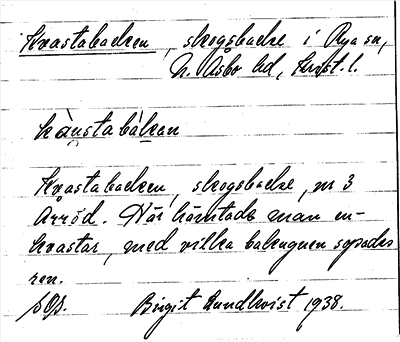 Kvastabacken, skogsbacke i Rya sn,
N. Åsbo hd, Krist. l.
kàu̯stabàkan
Kvastabacken, skogsbacke, nr 3
Arröd. Här hämtade man en-
kvastar, med vilka bakugnen sopades
ren.
Birgit Lundkvist 1938.